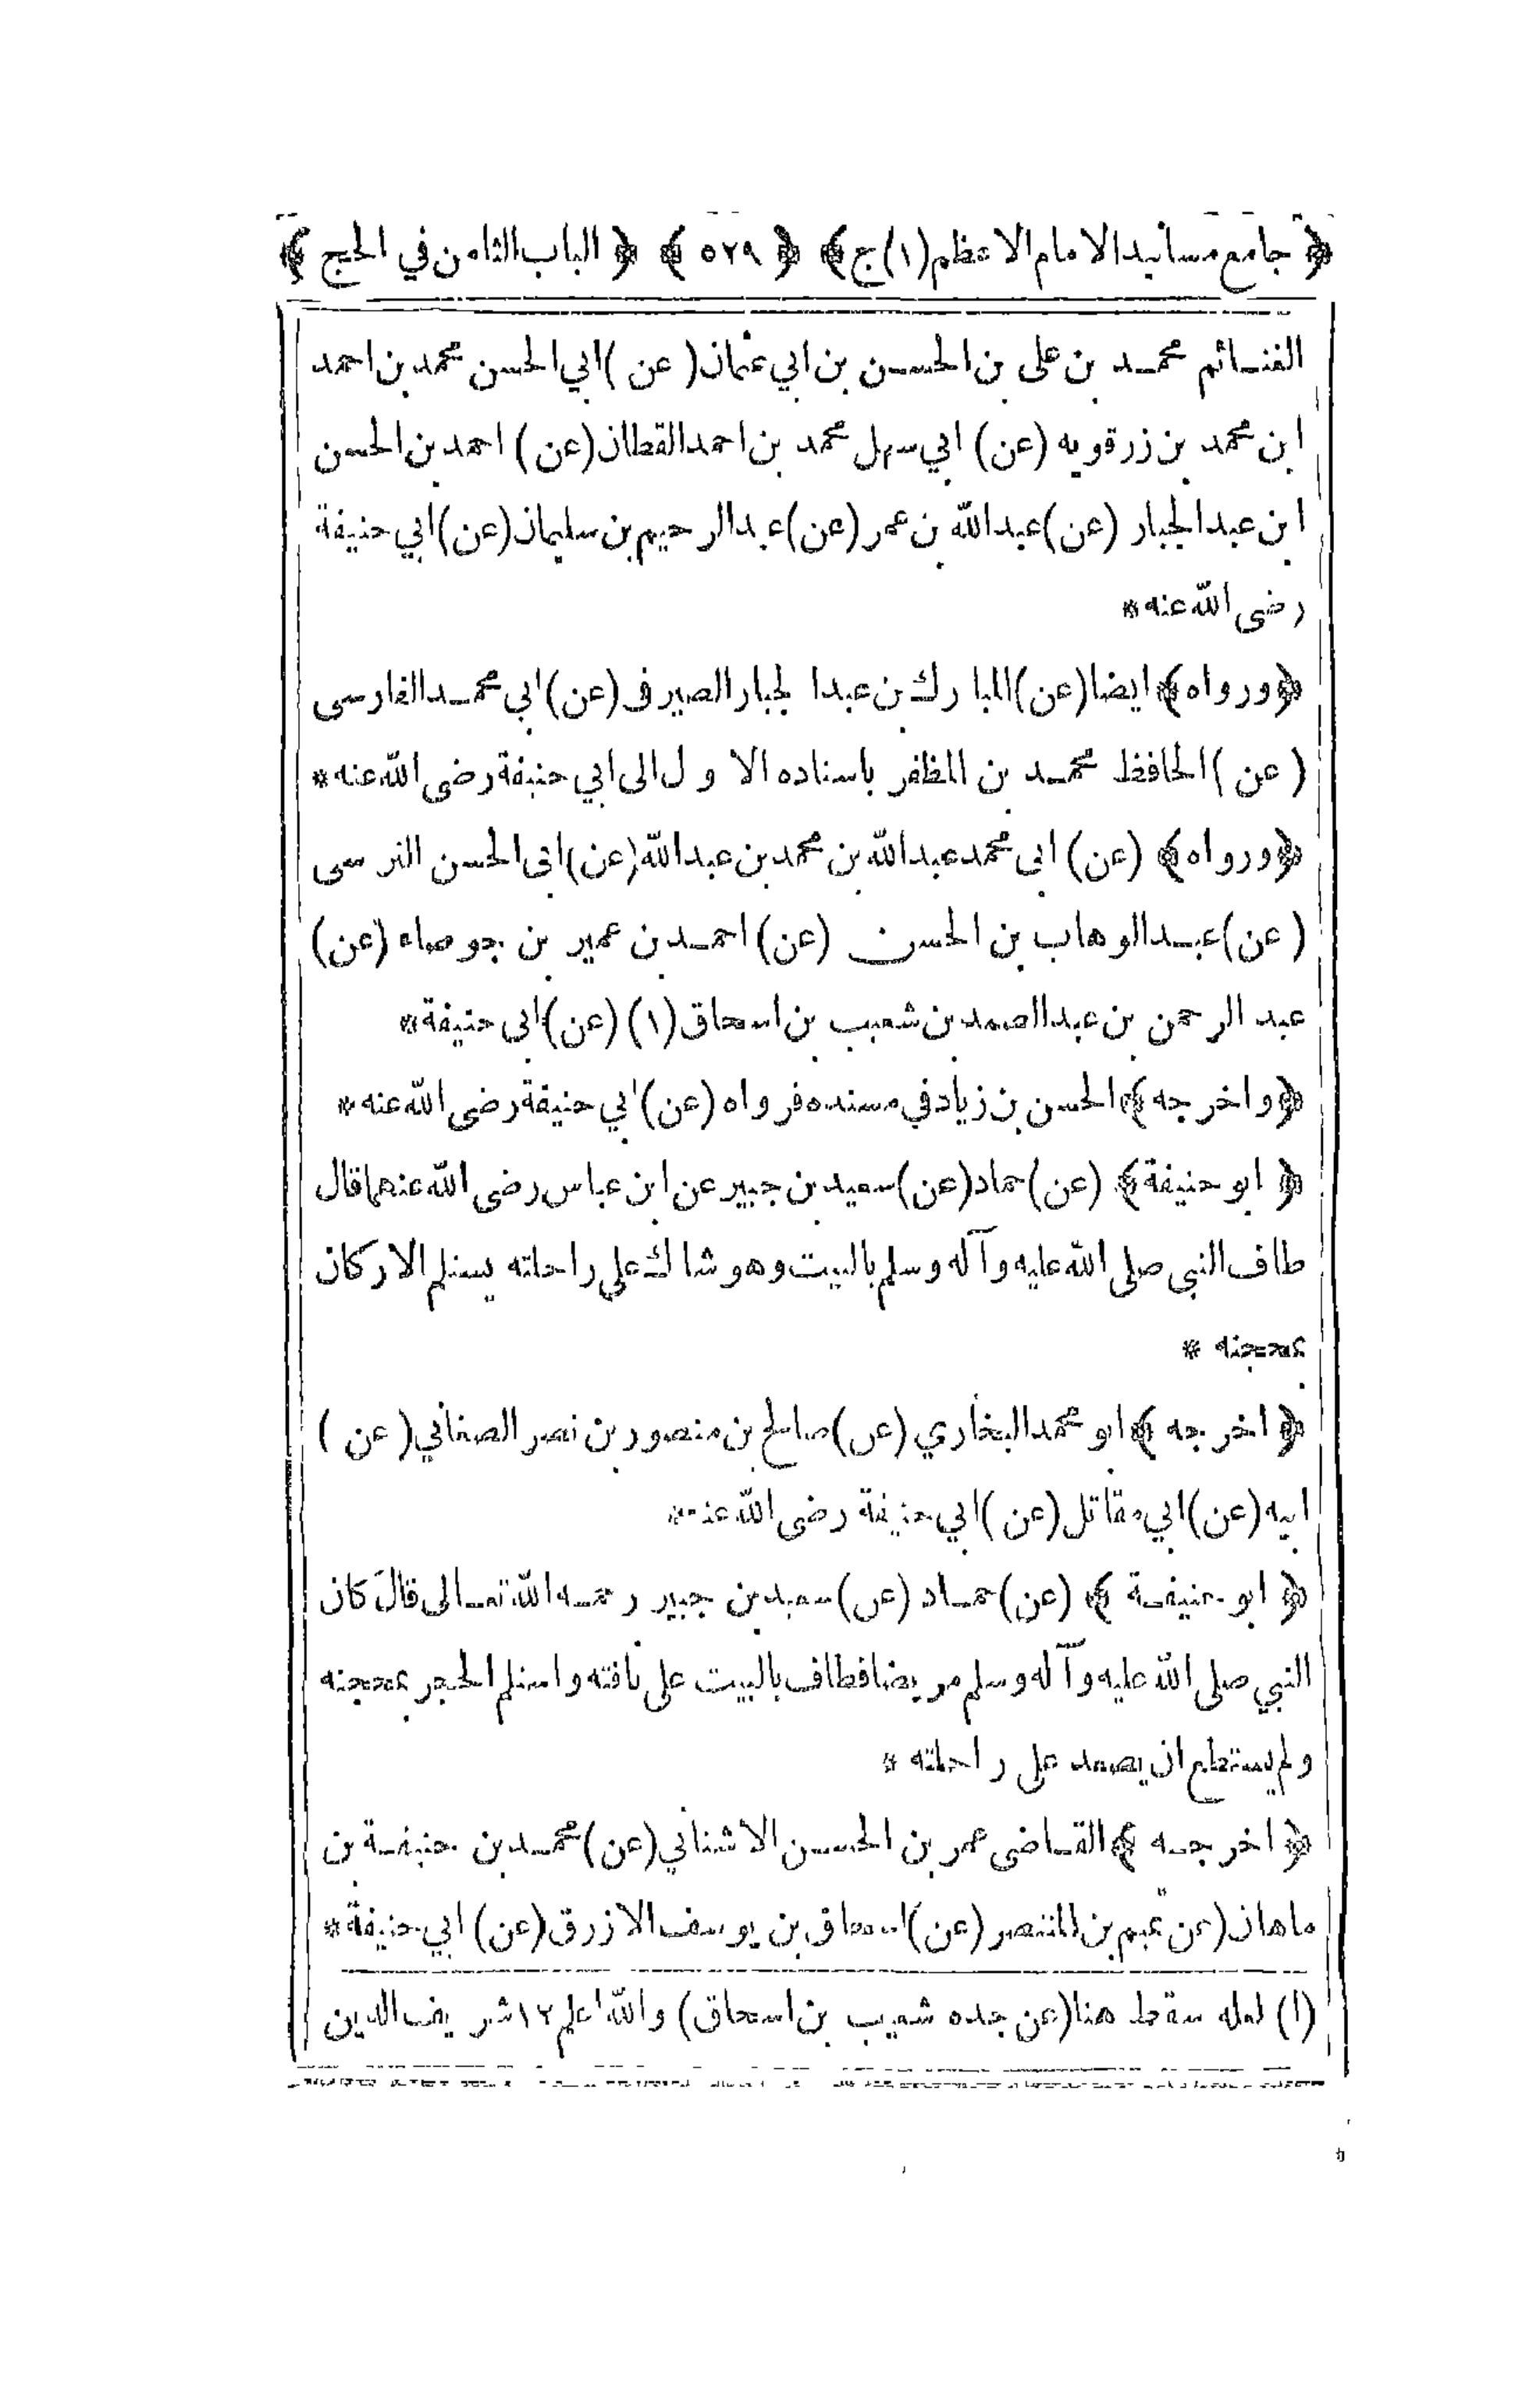 ﴿ جامع مسانيد الامام الاعظم (١) ج ﴾ ﴿ ٥٢٩ ﴾ ﴿ الباب الثامن في الحج ﴾
الغنائم محمد بن على بن الحسن بن ابي عثمان ( عن ) ابي الحسن محمد بن احمد
ابن محمد بن زرقويه (عن) ابي سهل محمد بن احمد القطان (عن) احمد بن الحسن
ابن عبد الجبار (عن) عبد الله بن عمر (عن) عبد الرحيم بن سليمان (عن) ابي حنيفة
رضى الله عنه *
﴿ ورواه ﴾ ايضا (عن) المبارك بن عبد الجبار الصير فى (عن) ابي محمد الفارسى
( عن ) الحافظ محمد بن المظفر باسناده الاول الى ابي حنيفة رضى الله عنه *
﴿ ورواه ﴾ (عن) ابى محمد عبد الله بن محمد بن عبد الله (عن) ابى الحسن النرسى
( عن ) عبد الوهاب بن الحسن (عن) احمد بن عمير بن جوصاه (عن)
عبد الرحمن بن عبد الصمد بن شعيب بن اسحاق (١) (عن) ابى حنيفة *
﴿ واخرجه ﴾ الحسن بن زياد في مسنده فرواه (عن) ابي حنيفة رضى الله عنه *
﴿ ابو حنيفة ﴾ (عن) حماد (عن) سعيد بن جبير عن ابن عباس رضى الله عنهما قال
طاف النبي صلى الله عليه وآله وسلم بالبيت وهو شاك على راحلته يستلم الاركان
بمحجنه *
﴿ اخرجه ﴾ ابو محمد البخاري (عن) صالح بن منصور بن نصر الصغاني ( عن )
ابيه (عن) ابي مقاتل (عن) ابي حنيفة رضى الله عنه *
﴿ ابو حنيفة ﴾ (عن) حماد (عن) سعيد بن جبير رحمه الله تعالى قال كان
النبي صلى الله عليه وآله وسلم مريضا فطاف بالبيت على ناقته واستلم الحجر بمحجنه
ولم يستطع ان يصعد على راحلته *
﴿ اخرجه ﴾ القاضى عمر بن الحسن الاشناني (عن) محمد بن حنيفة بن
ماهان (عن تميم بن المنتصر (عن) اسحاق بن يوسف الازرق (عن) ابي حنيفة *
(١) لعله سقط هنا (عن جده شعيب بن اسحاق) والله اعلم ١٢ شريف الدين